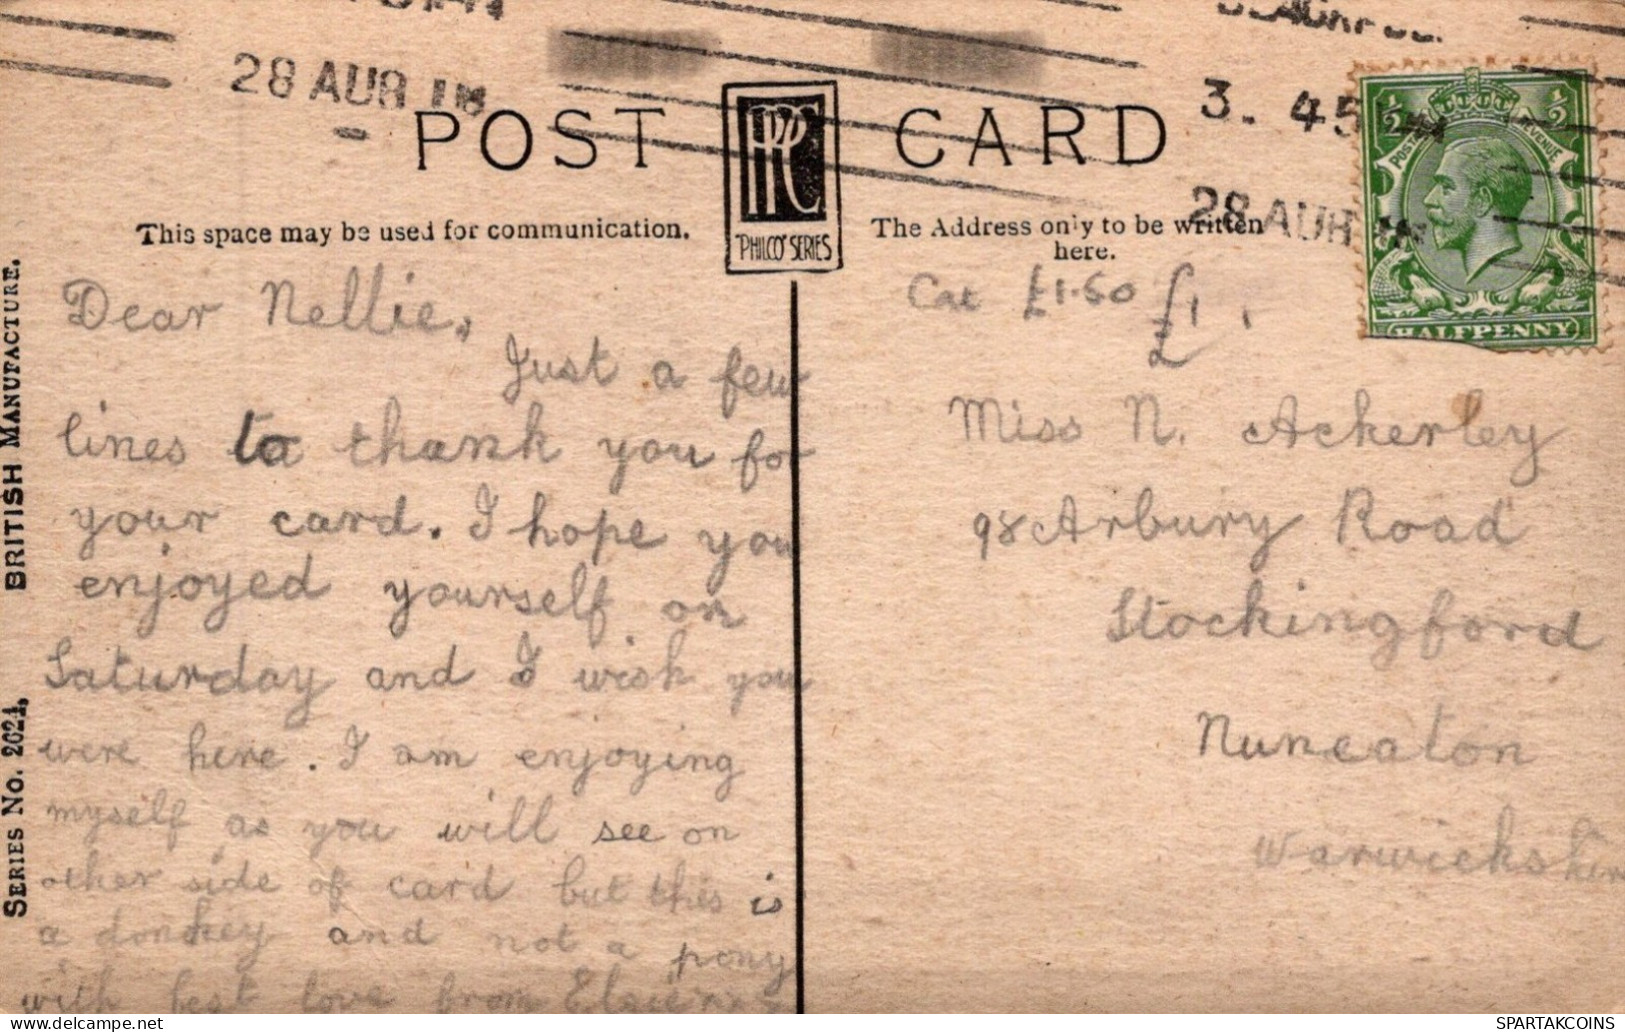 28 AUG 3. 45
28 AUG
POST CARD
PPC
"PHILCO" SERIES
HALFPENNY
POSTAGE REVENUE
½ ½
This space may be used for communication.
The Address only to be written
here.
Cat £1.50 £1
BRITISH MANUFACTURE.
SERIES No. 2024.
Dear Nellie,
Just a few
lines to thank you for
your card. I hope you
enjoyed yourself on
Saturday and I wish you
were here. I am enjoying
myself as you will see on
other side of card but this is
a donkey and not a pony
with best love from
Miss N. Ackerley
98 Arbury Road
Stockingford
Nuneaton
Warwickshire
SPARTAKCOINS